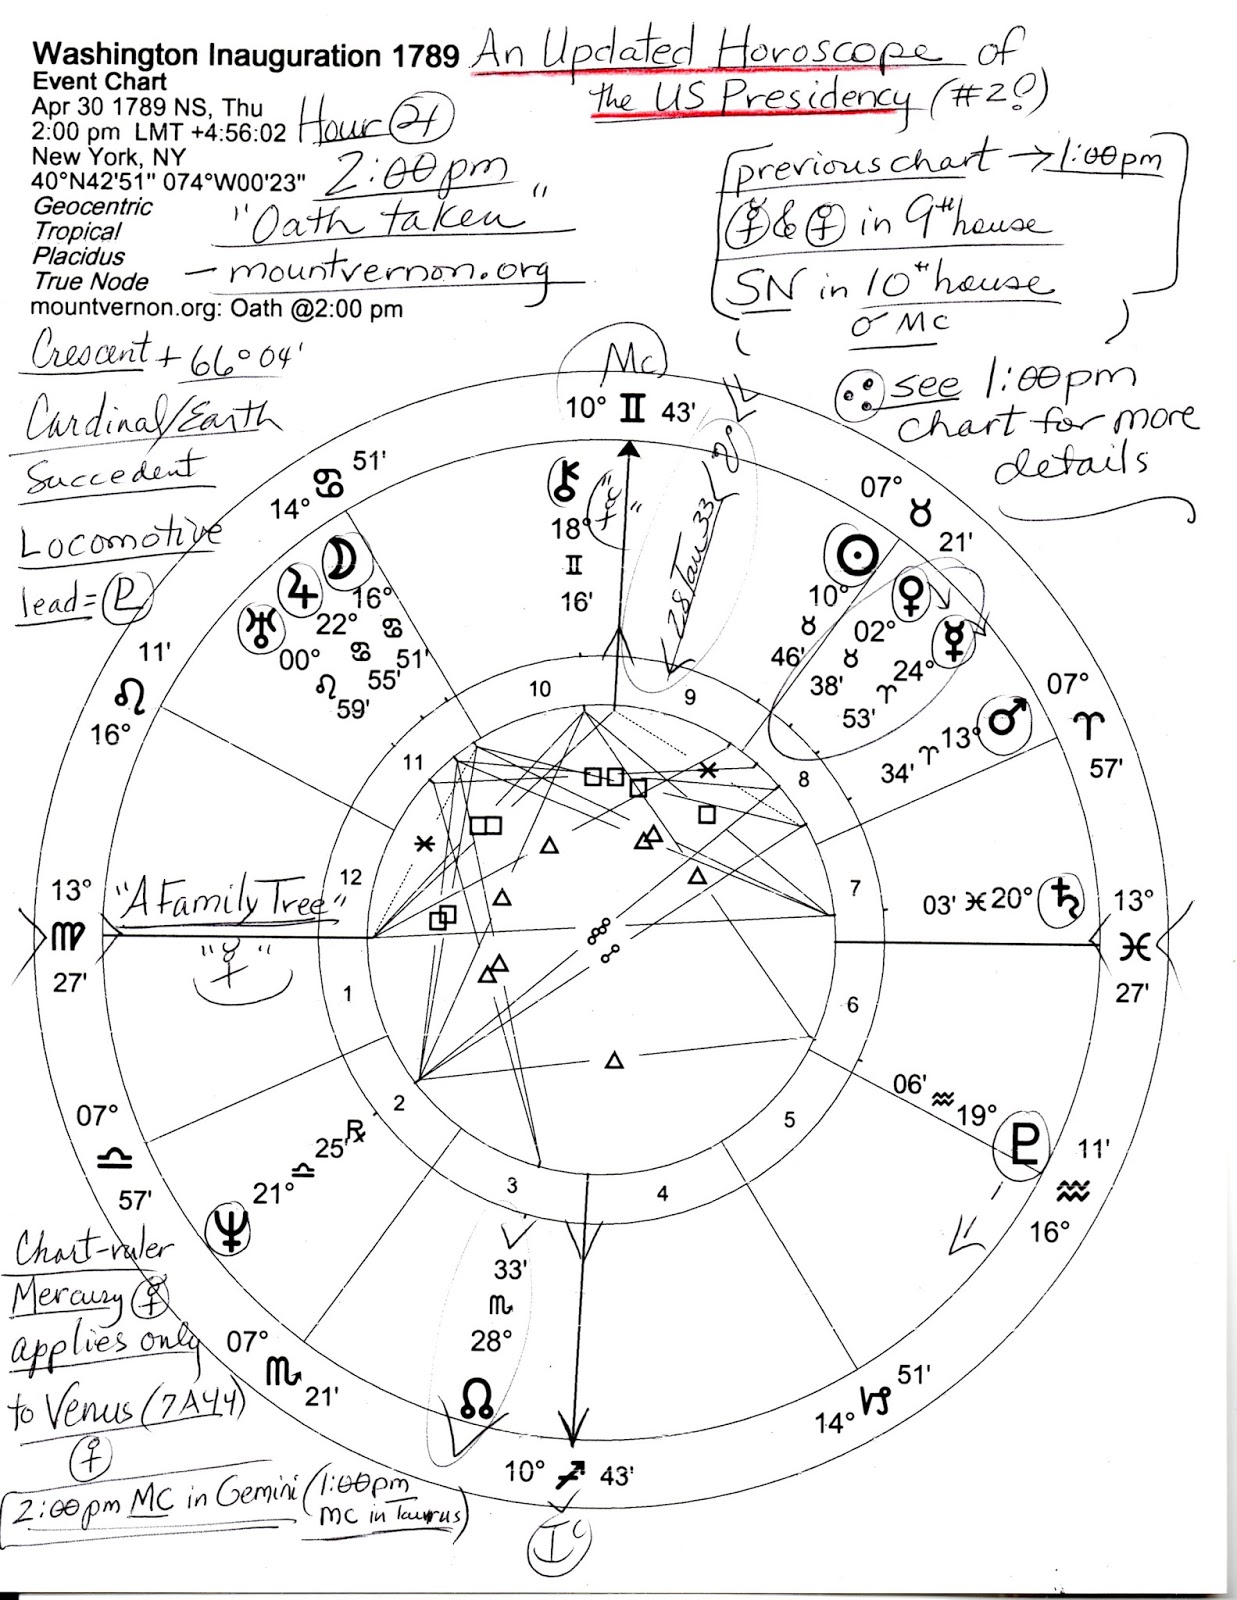 Washington Inauguration 1789 An Updated Horoscope of
Event Chart the US Presidency (#2?)
Apr 30 1789 NS, Thu
2:00 pm LMT +4:56:02 Hour ♃
New York, NY
40°N42'51" 074°W00'23" 2:00pm
Geocentric
Tropical "Oath taken"
Placidus
True Node – mountvernon.org
mountvernon.org: Oath @2:00 pm
previous chart → 1:00pm
☿ & ♀ in 9th house
SN in 10th house
☌ MC
see 1:00pm
chart for more
details
Crescent + 66°04'
Cardinal/Earth
Succedent
Locomotive
lead = ♇
Mc
10° ♊ 43'
28 Tau 33
14° ♋ 51'
07° ♉ 21'
⚷ 18° ♊ 16'
☽ 16° ♋ 51'
♃ 22° ♋ 55'
♅ 00° ♌ 59'
☉ 10° ♉ 46'
♀ 02° ♉ 38'
☿ 24° ♈ 53'
♂ 13° ♈ 34'
11' ♌ 16°
07° ♈ 57'
10
9
11
8
12
7
13° ♍ 27'
"A Family Tree"
"☿"
03' ♓ 20° ♄
13° ♓ 27'
1
6
2
5
3
4
07° ♎ 57'
♆ 21° ♎ 25' ℞
06' ♒ 19° ♇
11' ♒ 16°
33' ♏ 28° ☊
07° ♏ 21'
14° ♑ 51'
10° ♐ 43'
Ic
Chart-ruler
Mercury ☿
applies only
to Venus (7A44)
♀
2:00pm MC in Gemini (1:00pm
MC in Taurus)